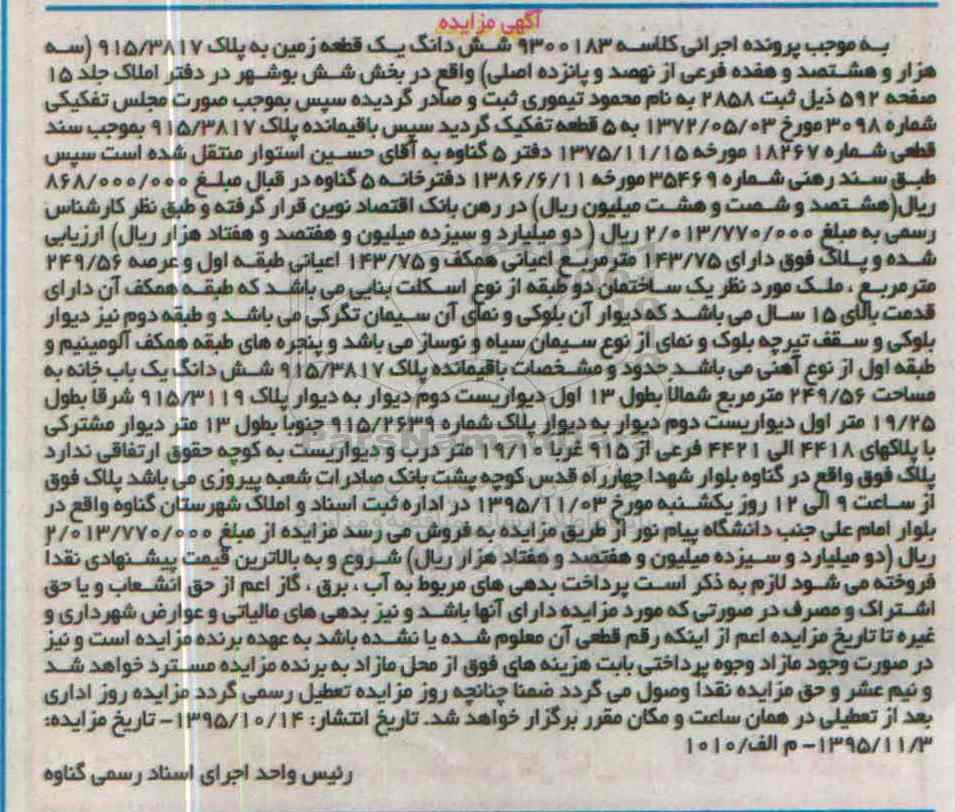 آگهی مزایده
به موجب پرونده اجرائی کلاسه ۹۳۰۰۱۸۳ شش دانگ یک قطعه زمین به پلاک ۹۱۵/۳۸۱۷ (سه
هزار و هشتصد و هفده فرعی از نهصد و پانزده اصلی) واقع در بخش شش بوشهر در دفتر املاک جلد ۱۵
صفحه ۵۹۲ ذیل ثبت ۲۸۵۸ به نام محمود تیموری ثبت و صادر گردیده سپس بموجب صورت مجلس تفکیکی
شماره ۳۰۹۸ مورخ ۱۳۷۲/۰۵/۰۳ به ۵ قطعه تفکیک گردید سپس باقیمانده پلاک ۹۱۵/۳۸۱۷ بموجب سند
قطعی شماره ۱۸۲۶۷ مورخه ۱۳۷۵/۱۱/۱۵ دفتر ۵ گناوه به آقای حسین استوار منتقل شده است سپس
طبق سند رهنی شماره ۳۵۴۶۹ مورخه ۱۳۸۶/۶/۱۱ دفترخانه ۵ گناوه در قبال مبلغ ۸۶۸/۰۰۰/۰۰۰
ریال(هشتصد و شصت و هشت میلیون ریال) در رهن بانک اقتصاد نوین قرار گرفته و طبق نظر کارشناس
رسمی به مبلغ ۲/۰۱۳/۷۷۰/۰۰۰ ریال ( دو میلیارد و سیزده میلیون و هفتصد و هفتاد هزار ریال) ارزیابی
شده و پلاک فوق دارای ۱۴۳/۷۵ مترمربع اعیانی همکف و ۱۴۳/۷۵ اعیانی طبقه اول و عرصه ۲۴۹/۵۶
مترمربع ، ملک مورد نظر یک ساختمان دو طبقه از نوع اسکلت بنایی می باشد که طبقه همکف آن دارای
قدمت بالای ۱۵ سال می باشد که دیوار آن بلوکی و نمای آن سیمان تگرکی می باشد و طبقه دوم نیز دیوار
بلوکی و سقف تیرچه بلوک و نمای از نوع سیمان سیاه و نوساز می باشد و پنجره های طبقه همکف آلومینیم و
طبقه اول از نوع آهنی می باشد حدود و مشخصات باقیمانده پلاک ۹۱۵/۳۸۱۷ شش دانگ یک باب خانه به
مساحت ۲۴۹/۵۶ مترمربع شمالا بطول ۱۳ اول دیواریست دوم دیوار به دیوار پلاک ۹۱۵/۳۱۱۹ شرقا بطول
۱۹/۲۵ متر اول دیواریست دوم دیوار به دیوار پلاک شماره ۹۱۵/۲۶۳۹ جنوبا بطول ۱۳ متر دیوار مشترکی
با پلاکهای ۴۴۱۸ الی ۴۴۲۱ فرعی از ۹۱۵ غربا ۱۹/۱۰ متر درب و دیواریست به کوچه حقوق ارتفاقی ندارد
پلاک فوق واقع در گناوه بلوار شهدا چهارراه قدس کوچه پشت بانک صادرات شعبه پیروزی می باشد پلاک فوق
از ساعت ۹ الی ۱۲ روز یکشنبه مورخ ۱۳۹۵/۱۱/۰۳ در اداره ثبت اسناد و املاک شهرستان گناوه واقع در
بلوار امام علی جنب دانشگاه پیام نور از طریق مزایده به فروش می رسد مزایده از مبلغ ۲/۰۱۳/۷۷۰/۰۰۰
ریال (دو میلیارد و سیزده میلیون و هفتصد و هفتاد هزار ریال) شروع و به بالاترین قیمت پیشنهادی نقدا
فروخته می شود لازم به ذکر است پرداخت بدهی های مربوط به آب ، برق ، گاز اعم از حق انشعاب و یا حق
اشتراک و مصرف در صورتی که مورد مزایده دارای آنها باشد و نیز بدهی های مالیاتی و عوارض شهرداری و
غیره تا تاریخ مزایده اعم از اینکه رقم قطعی آن معلوم شده یا نشده باشد به عهده برنده مزایده است و نیز
در صورت وجود مازاد وجوه پرداختی بابت هزینه های فوق از محل مازاد به برنده مزایده مسترد خواهد شد
و نیم عشر و حق مزایده نقدا وصول می گردد ضمنا چنانچه روز مزایده تعطیل رسمی گردد مزایده روز اداری
بعد از تعطیلی در همان ساعت و مکان مقرر برگزار خواهد شد. تاریخ انتشار: ۱۳۹۵/۱۰/۱۴- تاریخ مزایده:
۱۳۹۵/۱۱/۳- م الف/۱۰۱۰
رئیس واحد اجرای اسناد رسمی گناوه
ParsNamadData